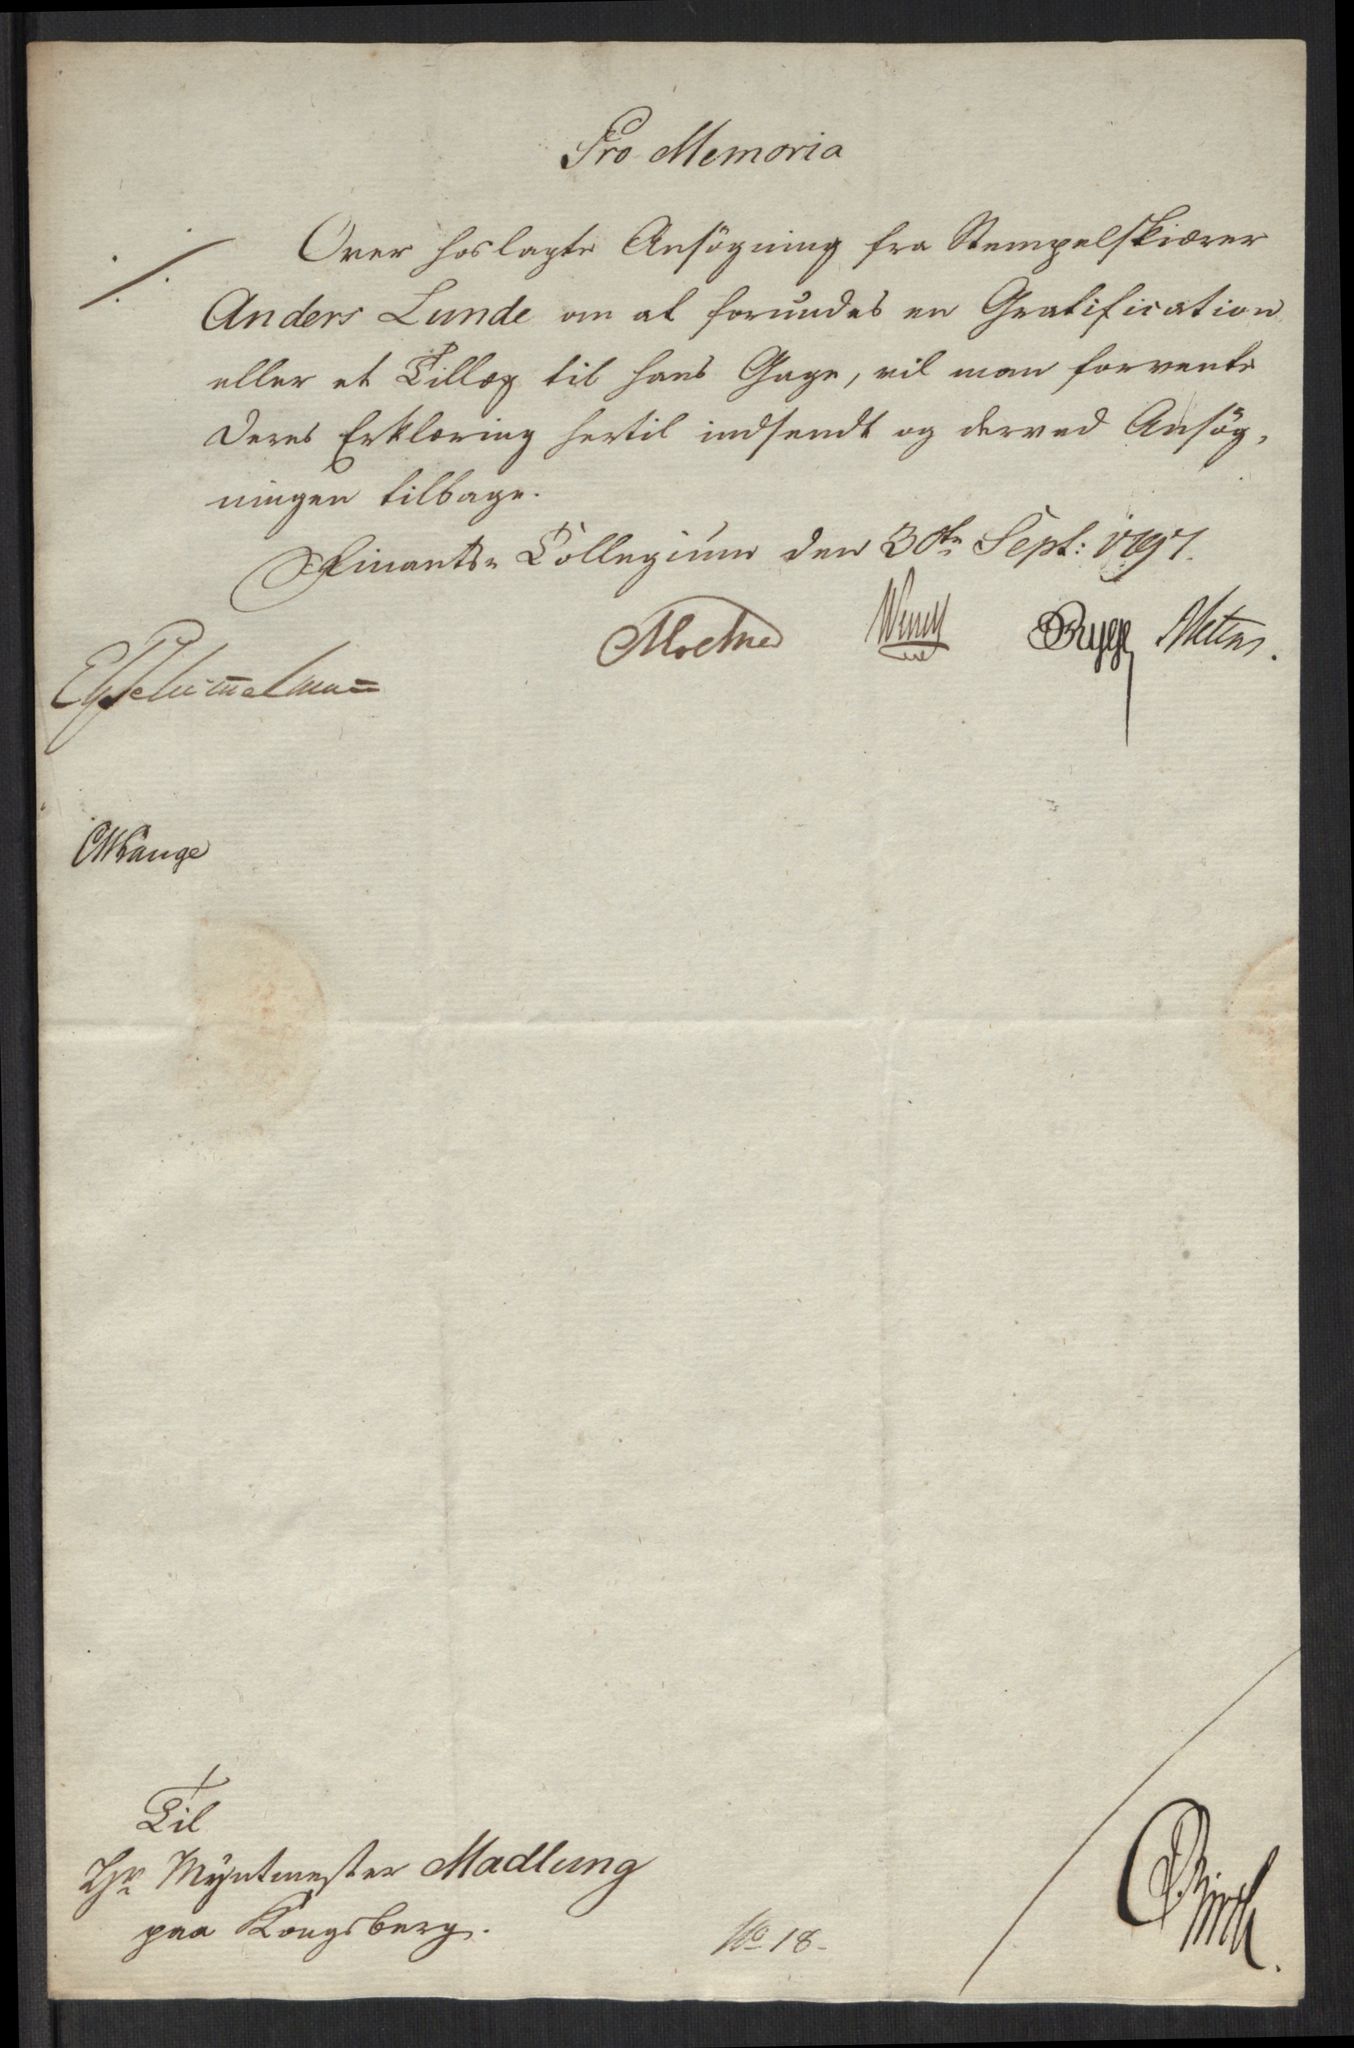 Pro Memoria
./. Over hoslagte Ansögning fra Stempelskiærer
Anders Lunde om at forundes en Gratification
eller et Tillæg til hans Gage, vil man forvente
Deres Erklæring hertil indsendt og derved Ansög,
ningen tilbage.
Finants-Collegium den 30te Sept: 1797.
Wendt Bugge
Til
Hr Myntmester Madlung
paa Kongsberg.
No 18.
Birch.